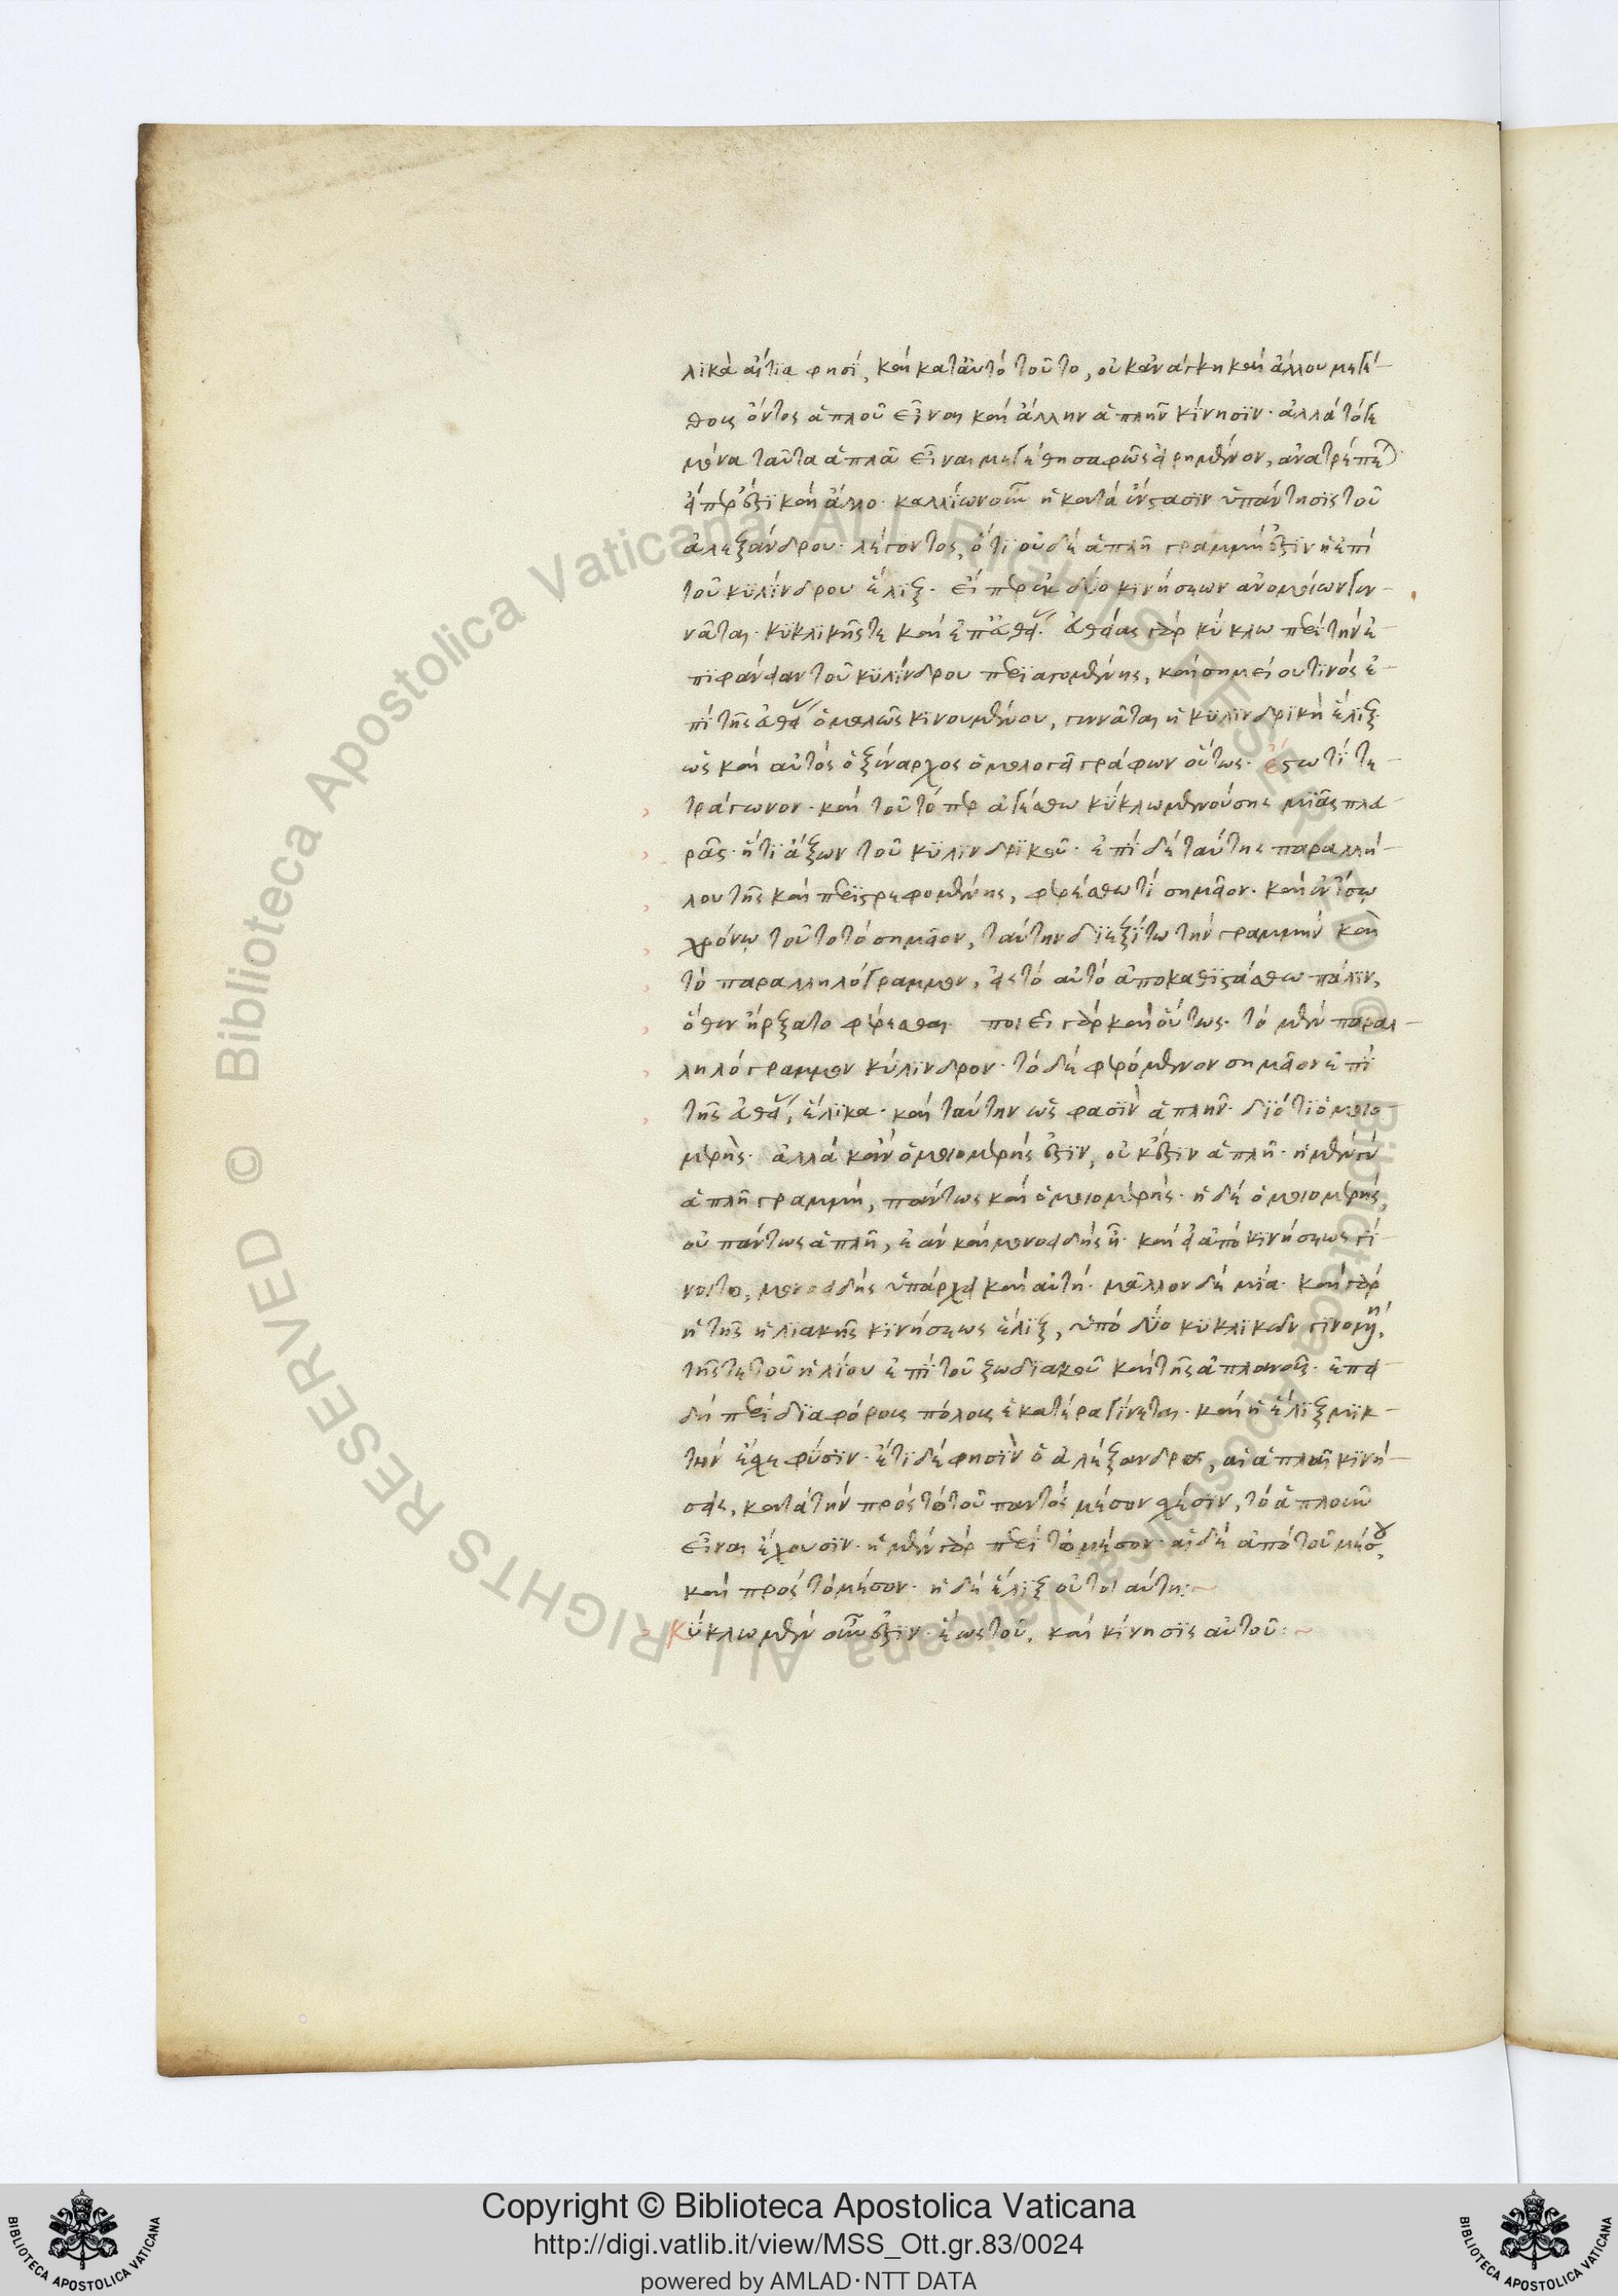 λϊκὰ αἴτϊα φησί, καὶ κατ' αὐτὸ τοῦτο, οὐκ ἀνάγκη καὶ ἄλλου μεγέ-
θους ὄντος ἁπλοῦ εἶναι καὶ ἄλλην ἁπλῆν κίνησϊν· ἀλλὰ τό γε
μόνα ταῦτα ἁπλᾶ εἶναι μεγέθη σαφῶς εἰρημένον, ἀνατρέπει
εἴπέρ ἐστϊ καὶ ἄλλο· καλλίων οὖν ἡ κατὰ ἔνστασϊν ὑπάντησϊς τοῦ
ἀλεξάνδρου· λέγοντος, ὅτϊ οὐδὲ ἁπλῆ γραμμή ἐστϊν ἡ ἐπὶ
τοῦ κυλίνδρου ἕλϊξ· εἴπερ ἐκ δύο κινήσεων ἀνομοίων γεν-
νᾶται· κυκλϊκῆς τε καὶ ἐπ' εὐθείας· εὐθείας γὰρ κύκλω περὶ τὴν ἐ-
πϊφάνειαν τοῦ κυλίνδρου περϊαγομένης, καὶ σημείου τϊνὸς ἐ-
πὶ τῆς εὐθείας ὁμαλῶς κϊνουμένου, γεννᾶται ἡ κυλϊνδρϊκὴ ἕλϊξ·
ὡς καὶ αὐτὸς ὁ ξέναρχος ὁμολογεῖ γράφων οὕτως· ἔστω τὶ τε-
τράγωνον· καὶ τοῦτο περϊαγέσθω κύκλω μενούσης μϊᾶς πλευ-
ρᾶς· ἥτϊς ἄξων τοῦ κυλϊνδρϊκοῦ· ἐπὶ δὲ ταύτης παραλλή-
λου τῆς καὶ περϊστρεφομένης, φερέσθω τὶ σημεῖον· καὶ ἐν ἴσῳ
χρόνῳ τοῦτο τὸ σημεῖον, ταύτην δϊεξίτω τὴν γραμμὴν καὶ
τὸ παραλληλόγραμμον, εἰς τὸ αὐτὸ ἀποκαθϊστάσθω πάλϊν,
ὅθεν ἤρξατο φέρεσθαι· ποιεῖ γὰρ καὶ οὕτως· τὸ μὲν παραλ-
ληλόγραμμον κύλϊνδρον· τὸ δὲ φερόμενον σημεῖον ἐπὶ
τῆς εὐθείας, ἕλϊκα· καὶ ταύτην ὥς φασϊν ἁπλῆν· δϊότϊ ὁμοιο
μερής· ἀλλὰ κἂν ὁμοιομερής ἐστϊν, οὐκ ἔστϊν ἁπλῆ· ἡ μὲν γὰρ
ἁπλῆ γραμμή, πάντως καὶ ὁμοιομερής· ἡ δὲ ὁμοιομερής,
οὐ πάντως ἁπλῆ, ἐὰν καὶ μονοειδὴς ᾖ· καὶ εἰ ἀπὸ κϊνήσεως γέ-
νοιτο, μονοειδὴς ὑπάρχει καὶ αὐτή· μᾶλλον δὲ μία· καὶ γὰρ
ἡ τῆς ἡλϊακῆς κϊνήσεως ἕλϊξ, ὑπὸ δύο κυκλϊκῶν γϊνομένη,
τῆς τε τοῦ ἡλίου ἐπὶ τοῦ ζωδϊακοῦ καὶ τῆς ἀπλανοῦς· ἐπει-
δὴ περὶ δϊαφόρους πόλους ἑκατέρα γίνεται· καὶ ἡ ἕλϊξ μϊκ-
τὴν ἔχει φύσϊν· ἔτϊ δέ φησϊν ὁ ἀλέξανδρος, αἱ ἁπλαῖ κϊνή-
σεις, κατὰ τὴν πρὸς τὸ τοῦ παντὸς μέσον σχέσϊν, τὸ ἁπλαῖ
εἶναι ἔχουσϊν· ἡ μὲν γὰρ περὶ τὸ μέσον· αἱ δὲ ἀπὸ τοῦ μέσου,
καὶ πρὸς τὸ μέσον· ἡ δὲ ἕλϊξ οὐ τοιαύτη:~
Κύκλω μὲν οὖν ἐστϊν· ἕως τοῦ, καὶ κίνησϊς αὐτοῦ:~
Copyright © Biblioteca Apostolica Vaticana
http://digi.vatlib.it/view/MSS_Ott.gr.83/0024
powered by AMLAD·NTT DATA